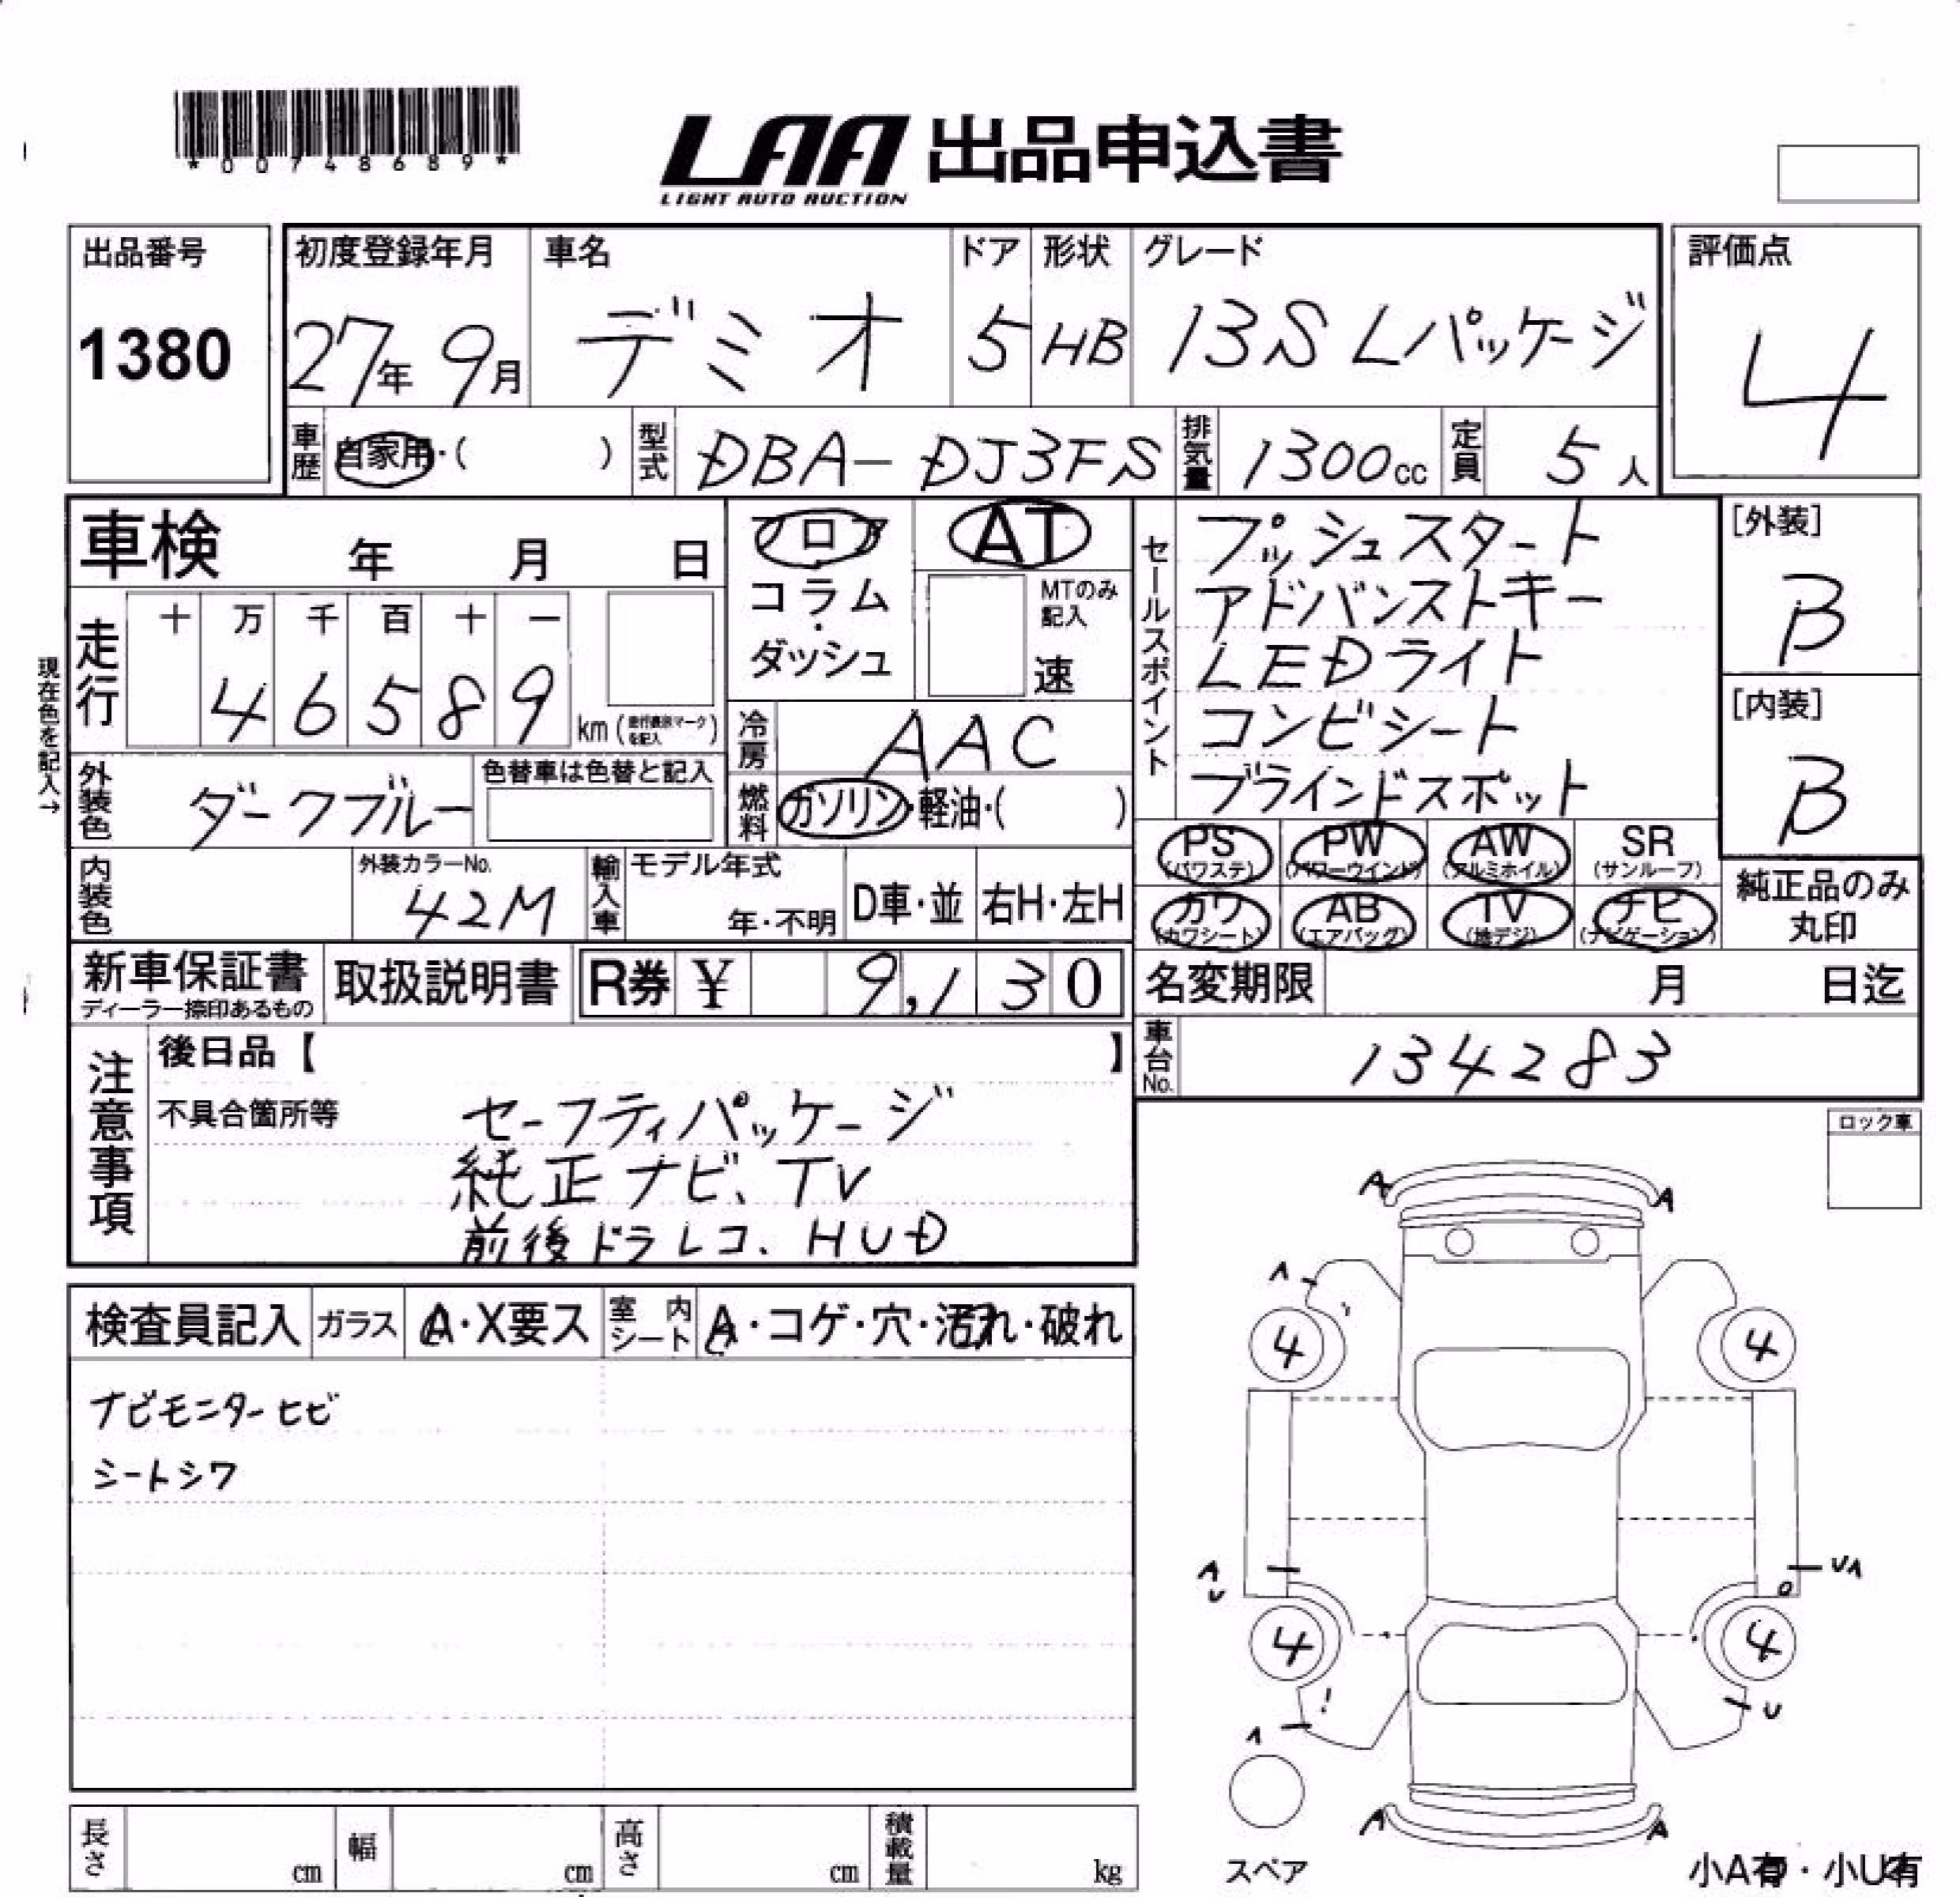 *00748689*
LAA 出品申込書
LIGHT AUTO AUCTION
出品番号
1380
初度登録年月
27年 9月
車名
デミオ
ドア
5
形状
HB
グレード
13S Lパッケージ
評価点
4
車歴 自家用・( )
型式 DBA-DJ3FS
排気量 1300cc
定員 5人
車検 年 月 日
フロア
コラム
・
ダッシュ
AT
MTのみ
記入
速
セールスポイント
プッシュスタート
アドバンストキー
LEDライト
コンビシート
ブラインドスポット
[外装]
B
[内装]
B
現在色を記入→
走行
十 万 千 百 十 一
4 6 5 8 9
km (走行表示マークを記入)
冷房 AAC
外装色 ダークブルー
色替車は色替と記入
燃料 ガソリン・軽油・( )
PS (パワステ)
PW (パワーウインド)
AW (アルミホイル)
SR (サンルーフ)
カワ (カワシート)
AB (エアバッグ)
TV (地デジ)
ナビ (ナビゲーション)
純正品のみ
丸印
内装色
外装カラーNo.
42M
輸入車
モデル年式
年・不明
D車・並
右H・左H
新車保証書
ディーラー捺印あるもの
取扱説明書
R券 ¥ 9,130
名変期限 月 日迄
車台No. 134283
注意事項
後日品【 】
不具合箇所等
セーフティパッケージ
純正ナビ、TV
前後ドラレコ、HUD
ロック車
検査員記入
ガラス A・X要ス
室内シート A・コゲ・穴・汚れ・破れ
ナビモニターヒビ
シートシワ
A A
A
4 4
A
U
UA
4 4
U
A
A A
スペア
小A有・小U有
長さ cm
幅 cm
高さ cm
積載量 kg